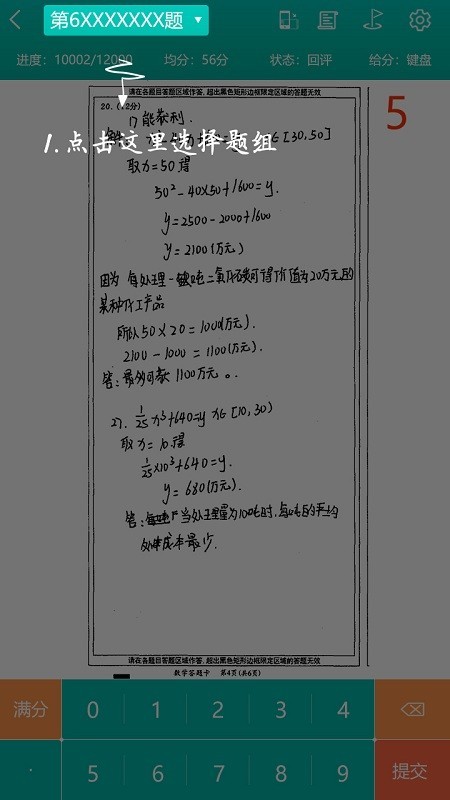 第6XXXXXXX题
进度：10002/12000 均分：56分 状态：回评 给分：键盘
请在各题目答题区域作答，超出黑色矩形边框限定区域的答题无效
20.（12分）
5
能获利.
∈[30,50]
1.点击这里选择题组
取x=50得
50²-40×50+1600=y.
y=2500-2000+1600
y=2100(万元)
因为 每处理一吨二氧化碳可得价值为20万元的
某种化工产品
所以50×20=1000(万元).
2100-1000=1100(万元).
答：最多可获1100万元。
27. 1/25 x³+640=y x∈[10,30)
取x=10.得
1/25×10³+640=y.
y=680(万元).
答：当处理量为100吨时，每吨的平均
处理成本最少.
请在各题目答题区域作答，超出黑色矩形边框限定区域的答题无效
数学答题卡 第4页(共6页)
满分 0 1 2 3 4
· 5 6 7 8 9 提交